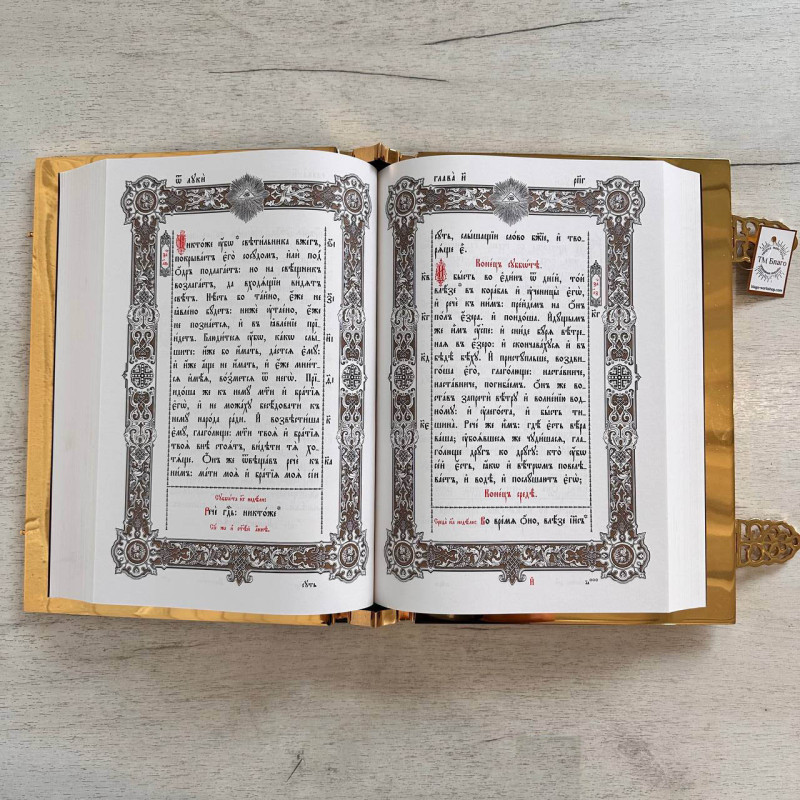 Ѿ лꙋкѝ
Никто́же ᲂу҆́бѡ свѣти́льника вже́гъ,
покрыва́етъ є҆го̀ сосꙋ́домъ, и҆лѝ под̾
ѻ҆́дръ подлага́етъ: но на свѣ́щникъ
возлага́етъ, да входѧ́щїи ви́дѧтъ
свѣ́тъ. Нѣ́сть бо та́йно, є҆́же не
ꙗ҆вле́но бꙋ́детъ: нижѐ ᲂу҆тае́но, є҆́же
не позна́етсѧ, и҆ въ ꙗ҆вле́нїе прї-
и́детъ. Блюди́тесѧ ᲂу҆̀бо, ка́кѡ слы́-
шите: и҆́же бо и҆́мать, да́стсѧ є҆мꙋ̀:
и҆ и҆́же а҆́ще не и҆́мать, и҆ є҆́же мни́т-
сѧ и҆мѣ́ѧ, во́зметсѧ ѿ негѡ̀. Прї-
идо́ша же къ немꙋ̀ мт҃и и҆ бра́тїѧ
є҆гѡ̀, и҆ не можа́хꙋ бесѣ́довати къ
немꙋ̀ наро́да ра́ди. И҆ возвѣсти́ша
є҆мꙋ̀, глаго́люще: мт҃и твоѧ̀ и҆ бра́тїѧ
твоѧ̀ внѣ̀ стоѧ́тъ, ви́дѣти тѧ̀ хо-
тѧ́ще. Ѻ҆́нъ же ѿвѣща́въ речѐ къ
ни̑мъ: ма́ти моѧ̀ и҆ бра́тїѧ моѧ̀ сі́и
Речѐ гдⷭ҇ь: никто́же
сꙋ́ть
глава̀ и҃
рп҃г
сꙋ́ть, слы́шащїи сло́во бж҃їе, и҆ тво-
рѧ́ще є҆̀.
Коне́цъ сꙋббѡ́тѣ.
И҆ бы́сть во є҆ди́нъ ѿ дні́й, то́й
влѣ́зе въ кора́бль и҆ ᲂу҆чн҃цы̀ є҆гѡ̀,
и҆ речѐ къ ни̑мъ: пре́йдемъ на ѻ҆́нъ
по́лъ є҆́зера. и҆ поидо́ша. И҆дꙋ́щымъ
же и҆̀мъ, ᲂу҆́спе: и҆ сни́де бꙋ́рѧ вѣ́тр-
наѧ въ є҆́зеро: и҆ скончава́хꙋсѧ и҆ въ
бѣдѣ̀ бѣ́хꙋ. И҆ пристꙋ́пльше, воздви-
го́ша є҆го̀, глаго́люще: наста́вниче,
наста́вниче, погиба́емъ. Ѻ҆́нъ же во-
ста́въ запретѝ вѣ́трꙋ и҆ волне́нїю во́д-
номꙋ: и҆ ᲂу҆лего́ста, и҆ бы́сть ти-
шина̀. Рече́ же и҆̀мъ: гдѣ̀ є҆́сть вѣ́ра
ва́ша; ᲂу҆боѧ́вшесѧ же чꙋди́шасѧ, гла-
го́люще дрꙋ́гъ ко дрꙋ́гꙋ: кто̀ ᲂу҆́бѡ
се́й є҆́сть, ꙗ҆́кѡ и҆ вѣ́трѡмъ повелѣ-
ва́етъ, и҆ водѣ̀, и҆ послꙋ́шаютъ є҆гѡ̀;
Коне́цъ средѣ̀.
Во вре́мѧ ѻ҆́но, влѣ́зе і҆и҃съ
и҃
ТМ Благо